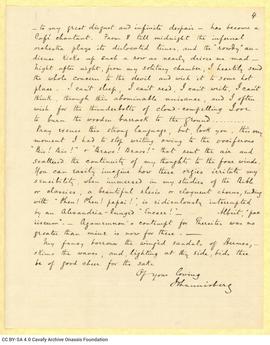 4
– to my great disgust and infinite despair – has become a
Café chantant. From 8 till midnight the infernal
orchestra plays its dislocated tunes, and the "rowdy" au-
dience kicks up such a row as nearly drives me mad –
night after night, from my solitary chamber, I heartily send
the whole concern to the devil and wish it to some hot
place. I can't sleep, I can't read, I can't write, I can't
think, through this abominable nuisance, and I often
wish for the thunderbolts of cloud-compelling Jove
to burn the wooden barrack to the ground.
Pray excuse this strong language, but, look you, this very
moment I had to stop writing owing to the vociferous
"Bis! Bis!" & "Bravo! Bravo!" that rent the air and
scattered the continuity of my thoughts to the four winds.
You can easily imagine how these orgies irritate my
sensibility, when immersed in my studies of the Bible
or classics, a beautiful or eloquent chorus, ending
with "Pheu! Pheu! papai!", is ridiculously interrupted
by an Alexandria-lunged "Encore!" – Albeit, "pas
." – Agamemnon's contempt for Thersites was no
greater than mine is now for these : –
My fancy, borrow the winged sandals of Hermes, –
skims the waves, and lighting at thy side, bids thee
be of good cheer for the sake
Of your loving
Ioannisberg
CC BY-SA 4.0 Cavafy Archive Onassis Foundation